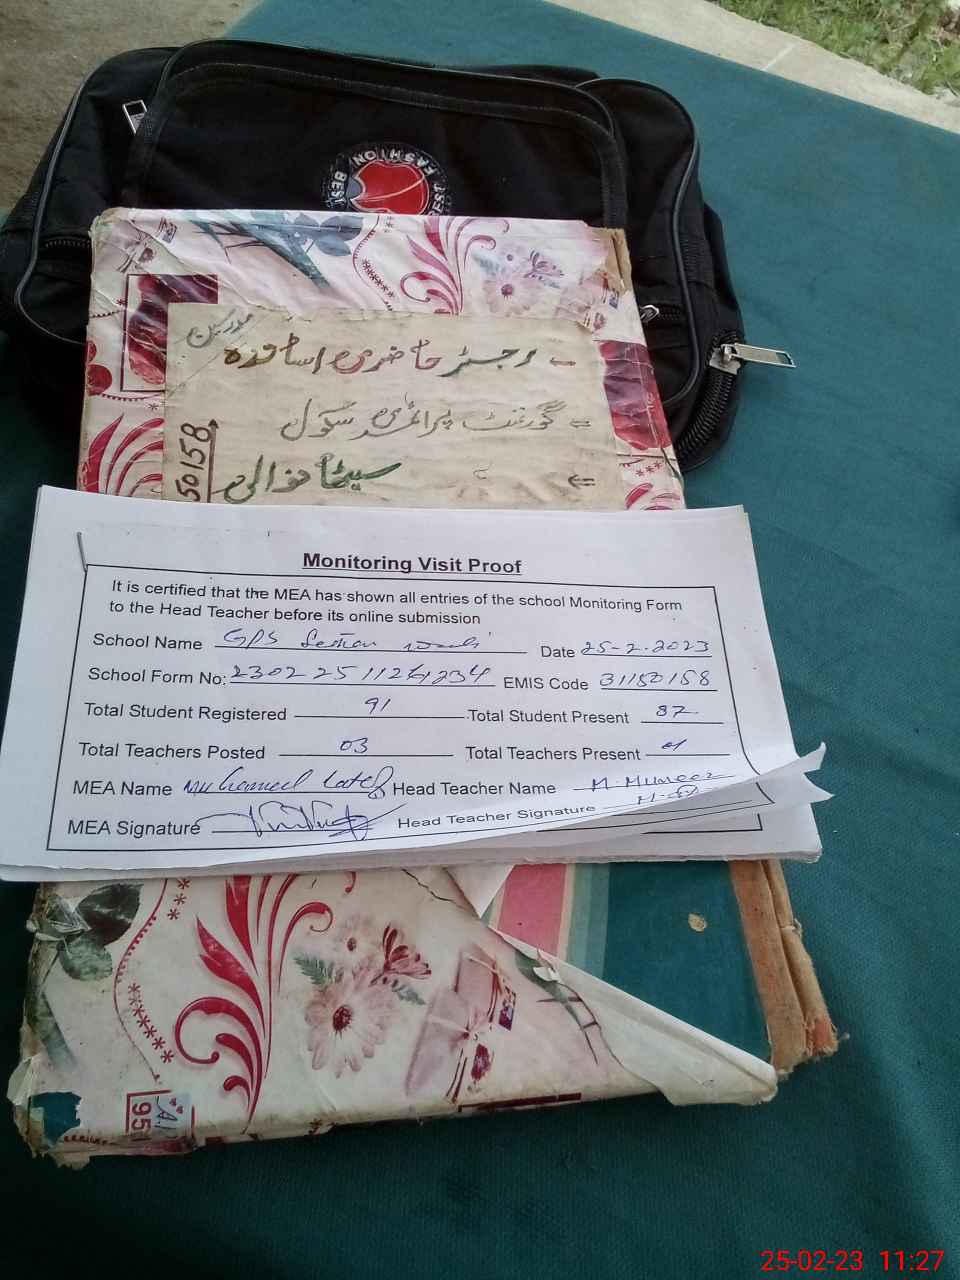 BEST FASHION BEST
مدرسین
رجسٹر حاضری اساتذہ
گورنمنٹ پرائمری سکول
50158
Monitoring Visit Proof
It is certified that the MEA has shown all entries of the school Monitoring Form
to the Head Teacher before its online submission
School Name GPS Date 25-2-2023
School Form No: EMIS Code 31150158
Total Student Registered 91 Total Student Present 87
Total Teachers Posted 03 Total Teachers Present 01
MEA Name Muhammad Lateef Head Teacher Name M. Muneer
MEA Signature Head Teacher Signature
95
25-02-23 11:27